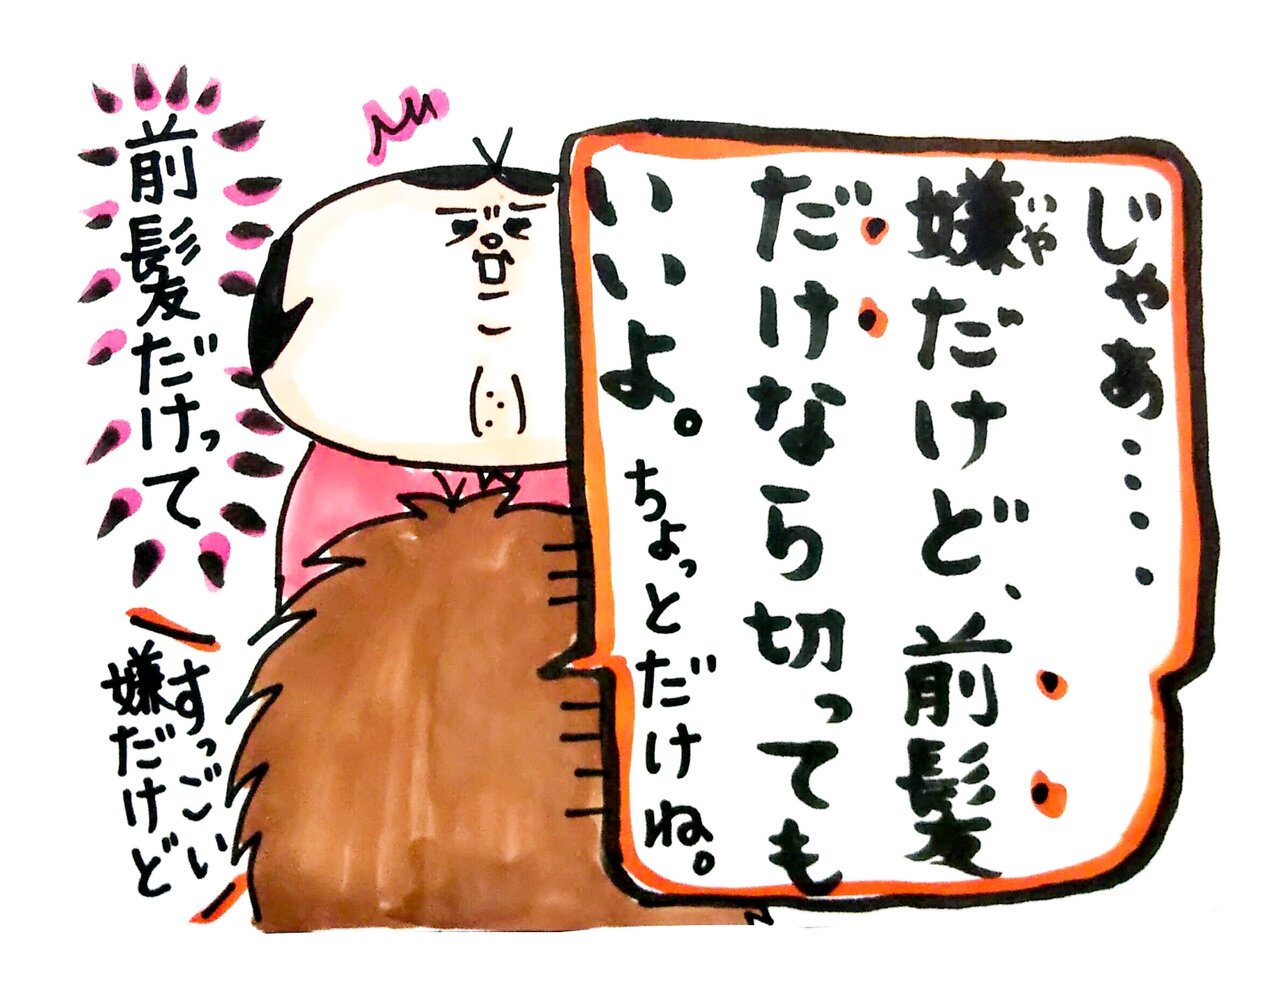 じゃあ・・・・
嫌だけど、前髪
いや
だけなら切っても
いいよ。ちょっとだけね。
前髪だけって
すっごい
嫌だけど